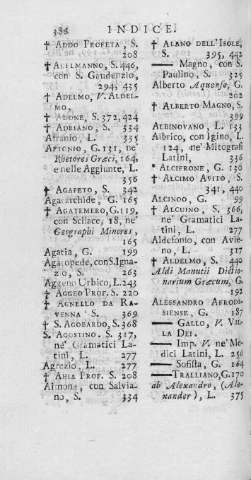 386 INDICE.
† ADDO PROFETA, S.
208
† ADELMANNO, S. 446,
con S. Gaudenzio,
294, 435
† ADELMO, V. ALDEL-
MO.
† ADONE, S. 372, 424
† ADRIANO, S. 334
Afranio, L.
AFTONIO, G. 131, ne'
Rhetores Græci, 164,
e nelle Aggiunte, L.
356
† AGAPETO, S. 342
Agatarchide, G. 165
† AGATEMERO, G. 119,
con Scilace, 18, ne'
Geographi Minores,
165
Agatia, G. 199
Agatopode, con S. Igna-
zio, S. 263
Aggeno Urbico, L. 243
† AGGEO PROF. S. 220
† AGNELLO DA RA-
VENNA S. 369
† S. AGOBARDO, S. 368
S. AGOSTINO, S. 317,
ne' Gramatici La-
tini, L. 277
Agrezio, L. 277
† AHIA PROF. S. 208
Aimone, con Salvia-
no, S. 334
† ALANO DELL'ISOLE,
S. 395, 442
—— Magno, con S.
Paulino, S. 325
Alberto Aquense, G.
202
† ALBERTO MAGNO, S.
399
ALBINOVANO, L. 134
Albrico, con Igino, L.
124, ne' Mitografi
Latini, 336
* ALCIFRONE, G. 130
† ALCIMO AVITO, S.
341, 440
ALCINOO, G. 99
† ALCUINO, S. 366,
ne' Gramatici La-
tini, L. 277
Aldefonio, con Avie-
no, L. 317
† ALDELMO, S. 440
Aldi Manutii Dictio-
narium Græcum, G.
192
ALESSANDRO AFRODI-
SIENSE, G. 187
—— GALLO, V. VIL-
LA DEI.
—— Imp. V. ne' Me-
dici Latini, L. 256
—— Sofista, G. 164
—— TRALLIANO, G. 170
ab Alexandro, (Ale-
xander), L. 375